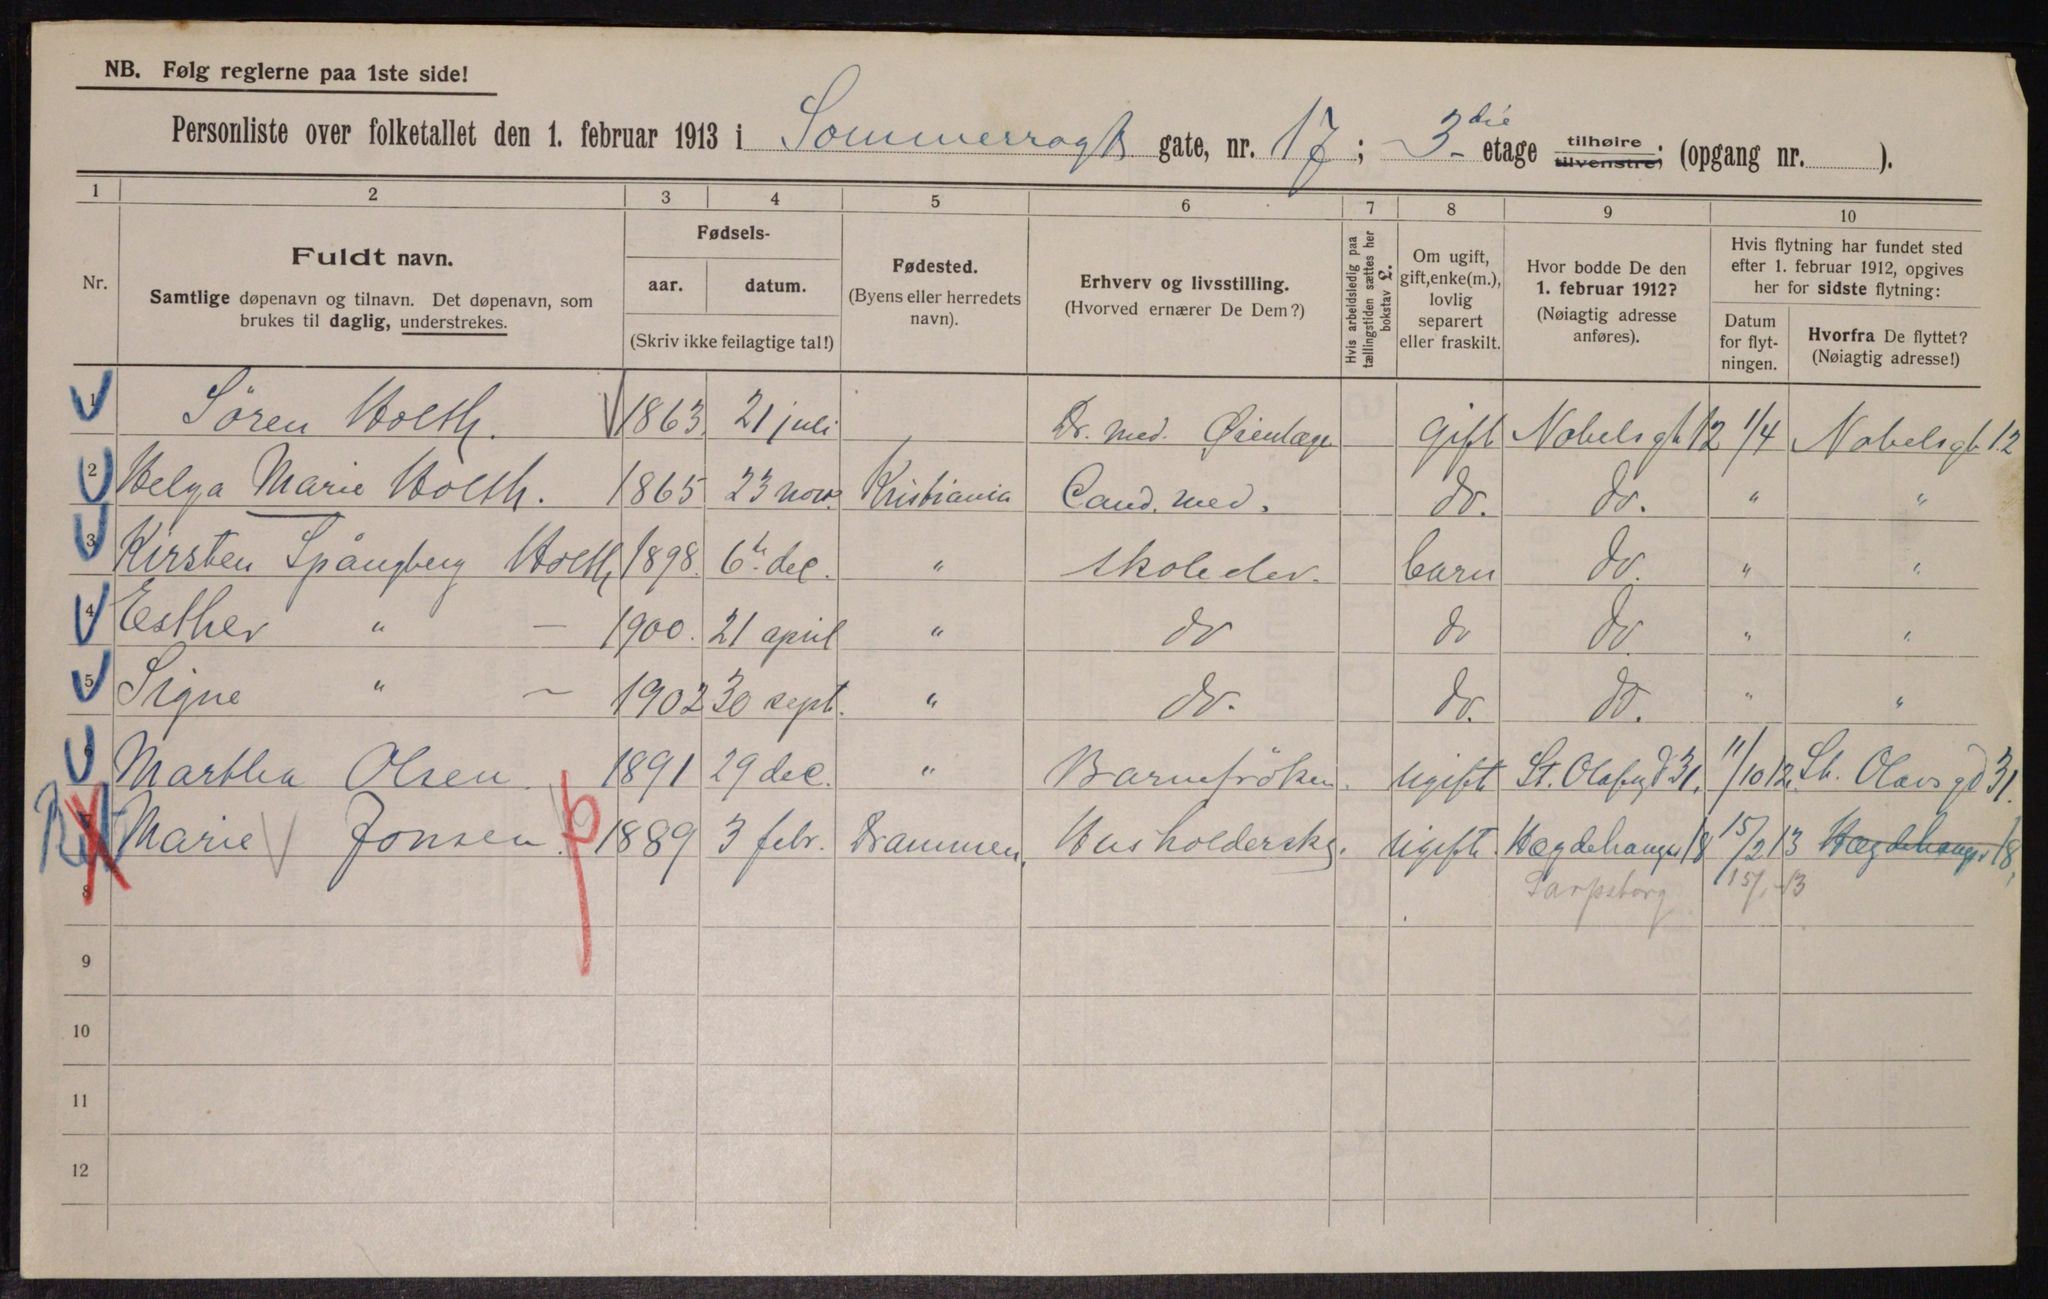 NB. Følg reglerne paa 1ste side!
Personliste over folketallet den 1. februar 1913 i Sommerrogt gate, nr. 17; 3die etage tilhøire tilvenstre; (opgang nr. ).
1 2 3 4 5 6 7 8 9 10
Nr.
Fuldt navn.
Samtlige døpenavn og tilnavn. Det døpenavn, som
brukes til daglig, understrekes.
Fødsels-
aar. datum.
(Skriv ikke feilagtige tal!)
Fødested.
(Byens eller herredets
navn).
Erhverv og livsstilling.
(Hvorved ernærer De Dem?)
Hvis arbeidsledig paa
tællingstiden sættes her
bokstav £.
Om ugift,
gift, enke(m.),
lovlig
separert
eller fraskilt.
Hvor bodde De den
1. februar 1912?
(Nøiagtig adresse
anføres).
Hvis flytning har fundet sted
efter 1. februar 1912, opgives
her for sidste flytning:
Datum
for flyt-
ningen.
Hvorfra De flyttet?
(Nøiagtig adresse!)
1 Sören Holth. 1863. 21 juli Dr. med. Øienlæge gift Nobelsgt 12 1/4 Nobelsgt 12
2 Helga Marie Holth. 1865 23 nov. Kristiania Cand. med. do. do. " "
3 Kirsten Spångberg Holth 1898. 6te dec. " skoleelev. barn do. " "
4 Esther " — 1900. 21 april " do do do. " "
5 Signe " — 1902 30 sept. " do. do. do. " "
6 Martha Olsen. 1891 29 dec. " Barnefröken. ugift St. Olafsgd 31. 11/10 12. St. Olavsgd 31.
7 Marie Jonsen. 1889 3 febr. Drammen. Husholdersk. ugift. Hægdehaugsv 18 15/2 13 Hægdehaugsv 18.
8 Sarpsborg 15/1-13
9
10
11
12